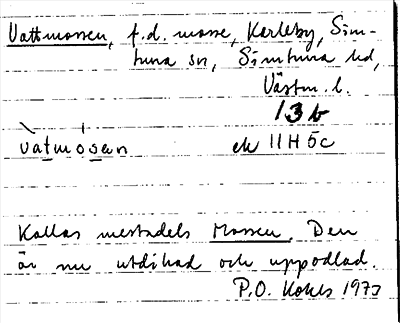 Vattmossen, f.d. mosse, Karleby, Sim-
tuna sn, Simtuna hd,
Västm. l.
13 b
vàtmósan ek 11H 5c
Kallas mestadels Mossen. Den
är nu utdikad och uppodlad.
P.O. 1973